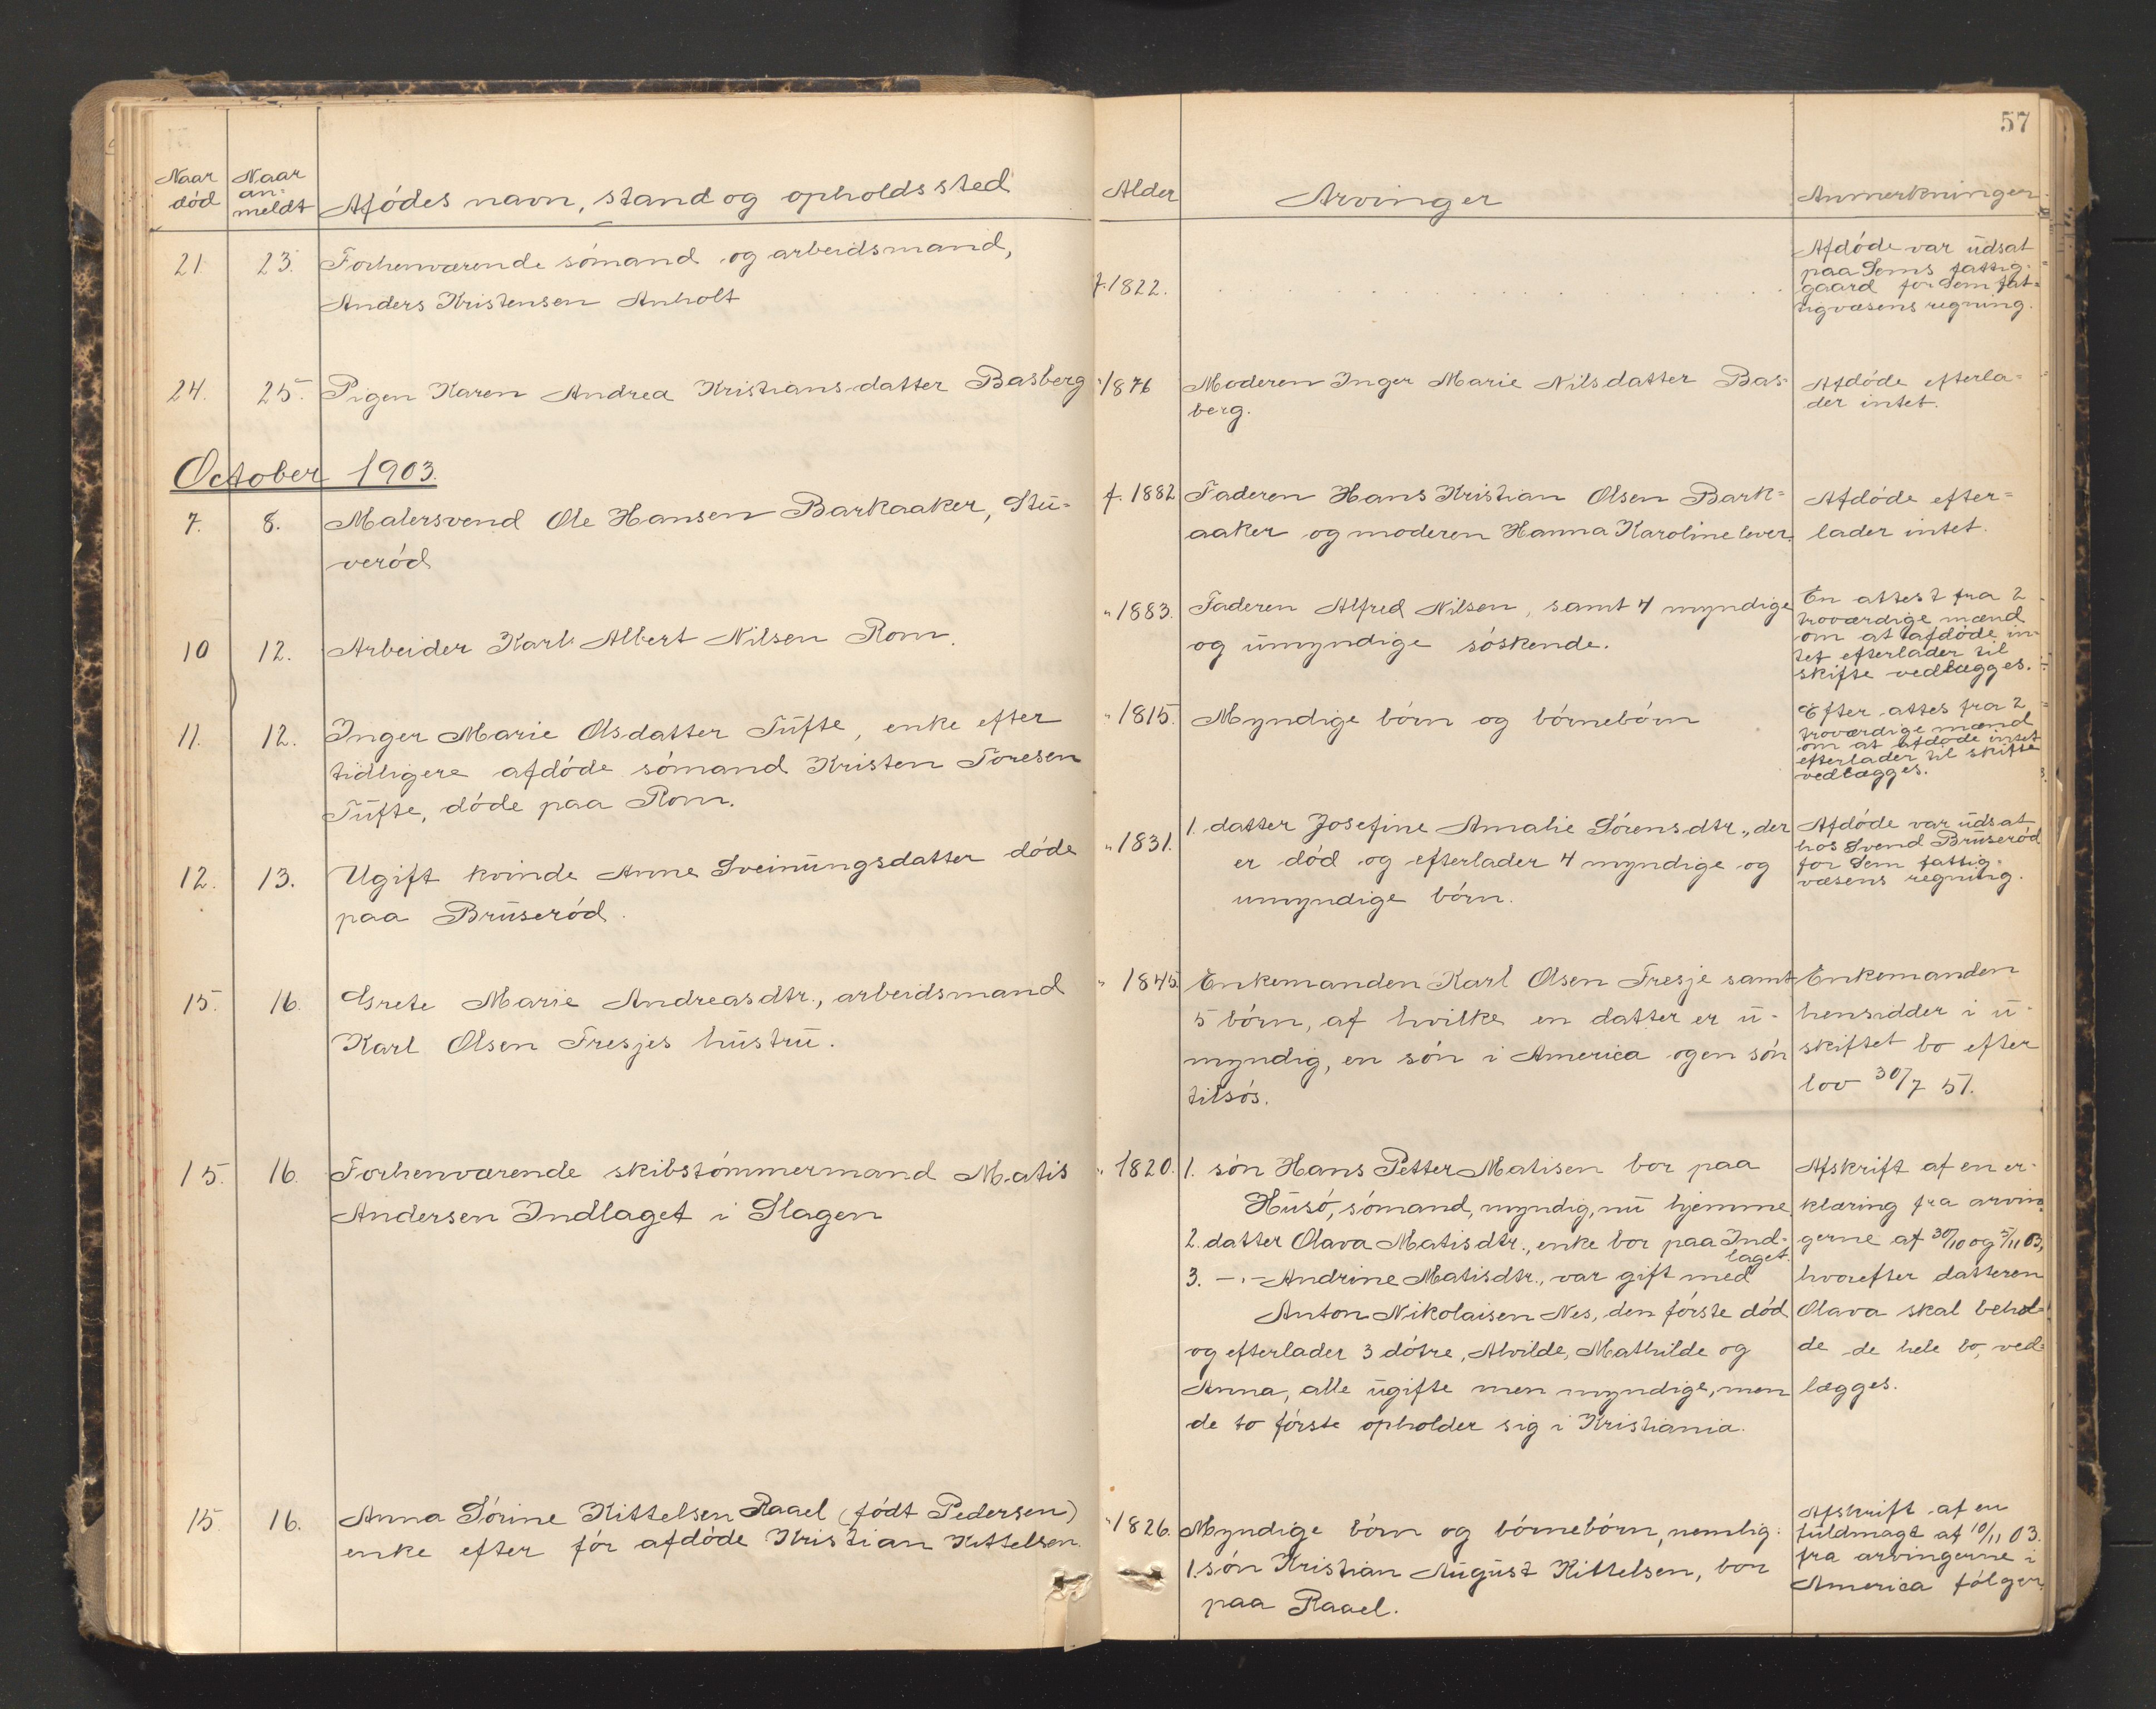 57
Naar død
Naar anmeldt
Afdødes navn, stand og opholdssted
Alder
Arvinger
Anmerkninger
21. 23. Forhenværende sømand og arbeidsmand,
Anders Kristensen Anholt
f. 1822.
Afdøde var udsat
paa Sems fattig-
gaard for Sem fat-
tigvæsens regning.
24. 25. Pigen Karen Andrea Kristiansdatter Basberg
" 1876
Moderen Inger Marie Nilsdatter Bas-
berg.
Afdøde efterla-
der intet.
October 1903.
7. 8. Malersvend Ole Hansen Barkaaker, Stu-
verød
f. 1882
Faderen Hans Kristian Olsen Bark-
aaker og moderen Hanna Karoline lever.
Afdøde efter-
lader intet.
10 12. Arbeider Karl Albert Nilsen Rom.
" 1883.
Faderen Alfred Nilsen, samt 4 myndige
og umyndige søskende.
En attest fra 2
troværdige mænd
om at afdøde in-
tet efterlader til
skifte vedlægges.
11. 12. Inger Marie Olsdatter Tufte, enke efter
tidligere afdøde sømand Kristen Toresen
Tufte, døde paa Rom.
" 1815.
Myndige børn og børnebørn
Efter attes fra 2
troværdige mænd
om at afdøde intet
efterlader til skifte
vedlægges.
12. 13. Ugift kvinde Anne Sveinungsdatter døde
paa Bruserød.
" 1831.
1. datter Josefine Amalie Sørensdtr., der
er død og efterlader 4 myndige og
umyndige børn.
Afdøde var udsat
hos Svend Bruserød
for Sem fattig-
væsens regning.
15. 16. Grete Marie Andreasdtr., arbeidsmand
Karl Olsen Fresjes hustru.
" 1845
Enkemanden Karl Olsen Fresje samt
5 børn, af hvilke en datter er u-
myndig, en søn i America og en søn
tilsøs.
Enkemanden
hensidder i u-
skiftet bo efter
lov 30/7 51.
15. 16. Forhenværende skibstømmermand Matis
Andersen Indlaget i Slagen
" 1820.
1. søn Hans Petter Matisen bor paa
Husø, sømand, myndig, nu hjemme
2. datter Olava Matisdtr., enke bor paa Ind-
laget.
3. -"- Andrine Matisdtr., var gift med
Anton Nikolaisen Nes, den første død
og efterlader 3 døtre, Alvilde, Mathilde og
Anna, alle ugifte men myndige, men
de to første opholder sig i Kristiania.
Afskrift af en er-
klæring fra arvin-
gerne af 30/10 og 5/11 03,
hvorefter datteren
Olava skal behol-
de de hele bo, ved-
lægges.
15. 16. Anna Sørine Kittelsen Raael (født Pedersen)
enke efter før afdøde Kristian Kittelsen.
" 1826.
Myndige børn og børnebørn, nemlig:
1. søn Kristian August Kittelsen, bor
paa Raael.
Afskrift af en
fuldmagt af 10/11 03.
fra arvingerne i
America følger.